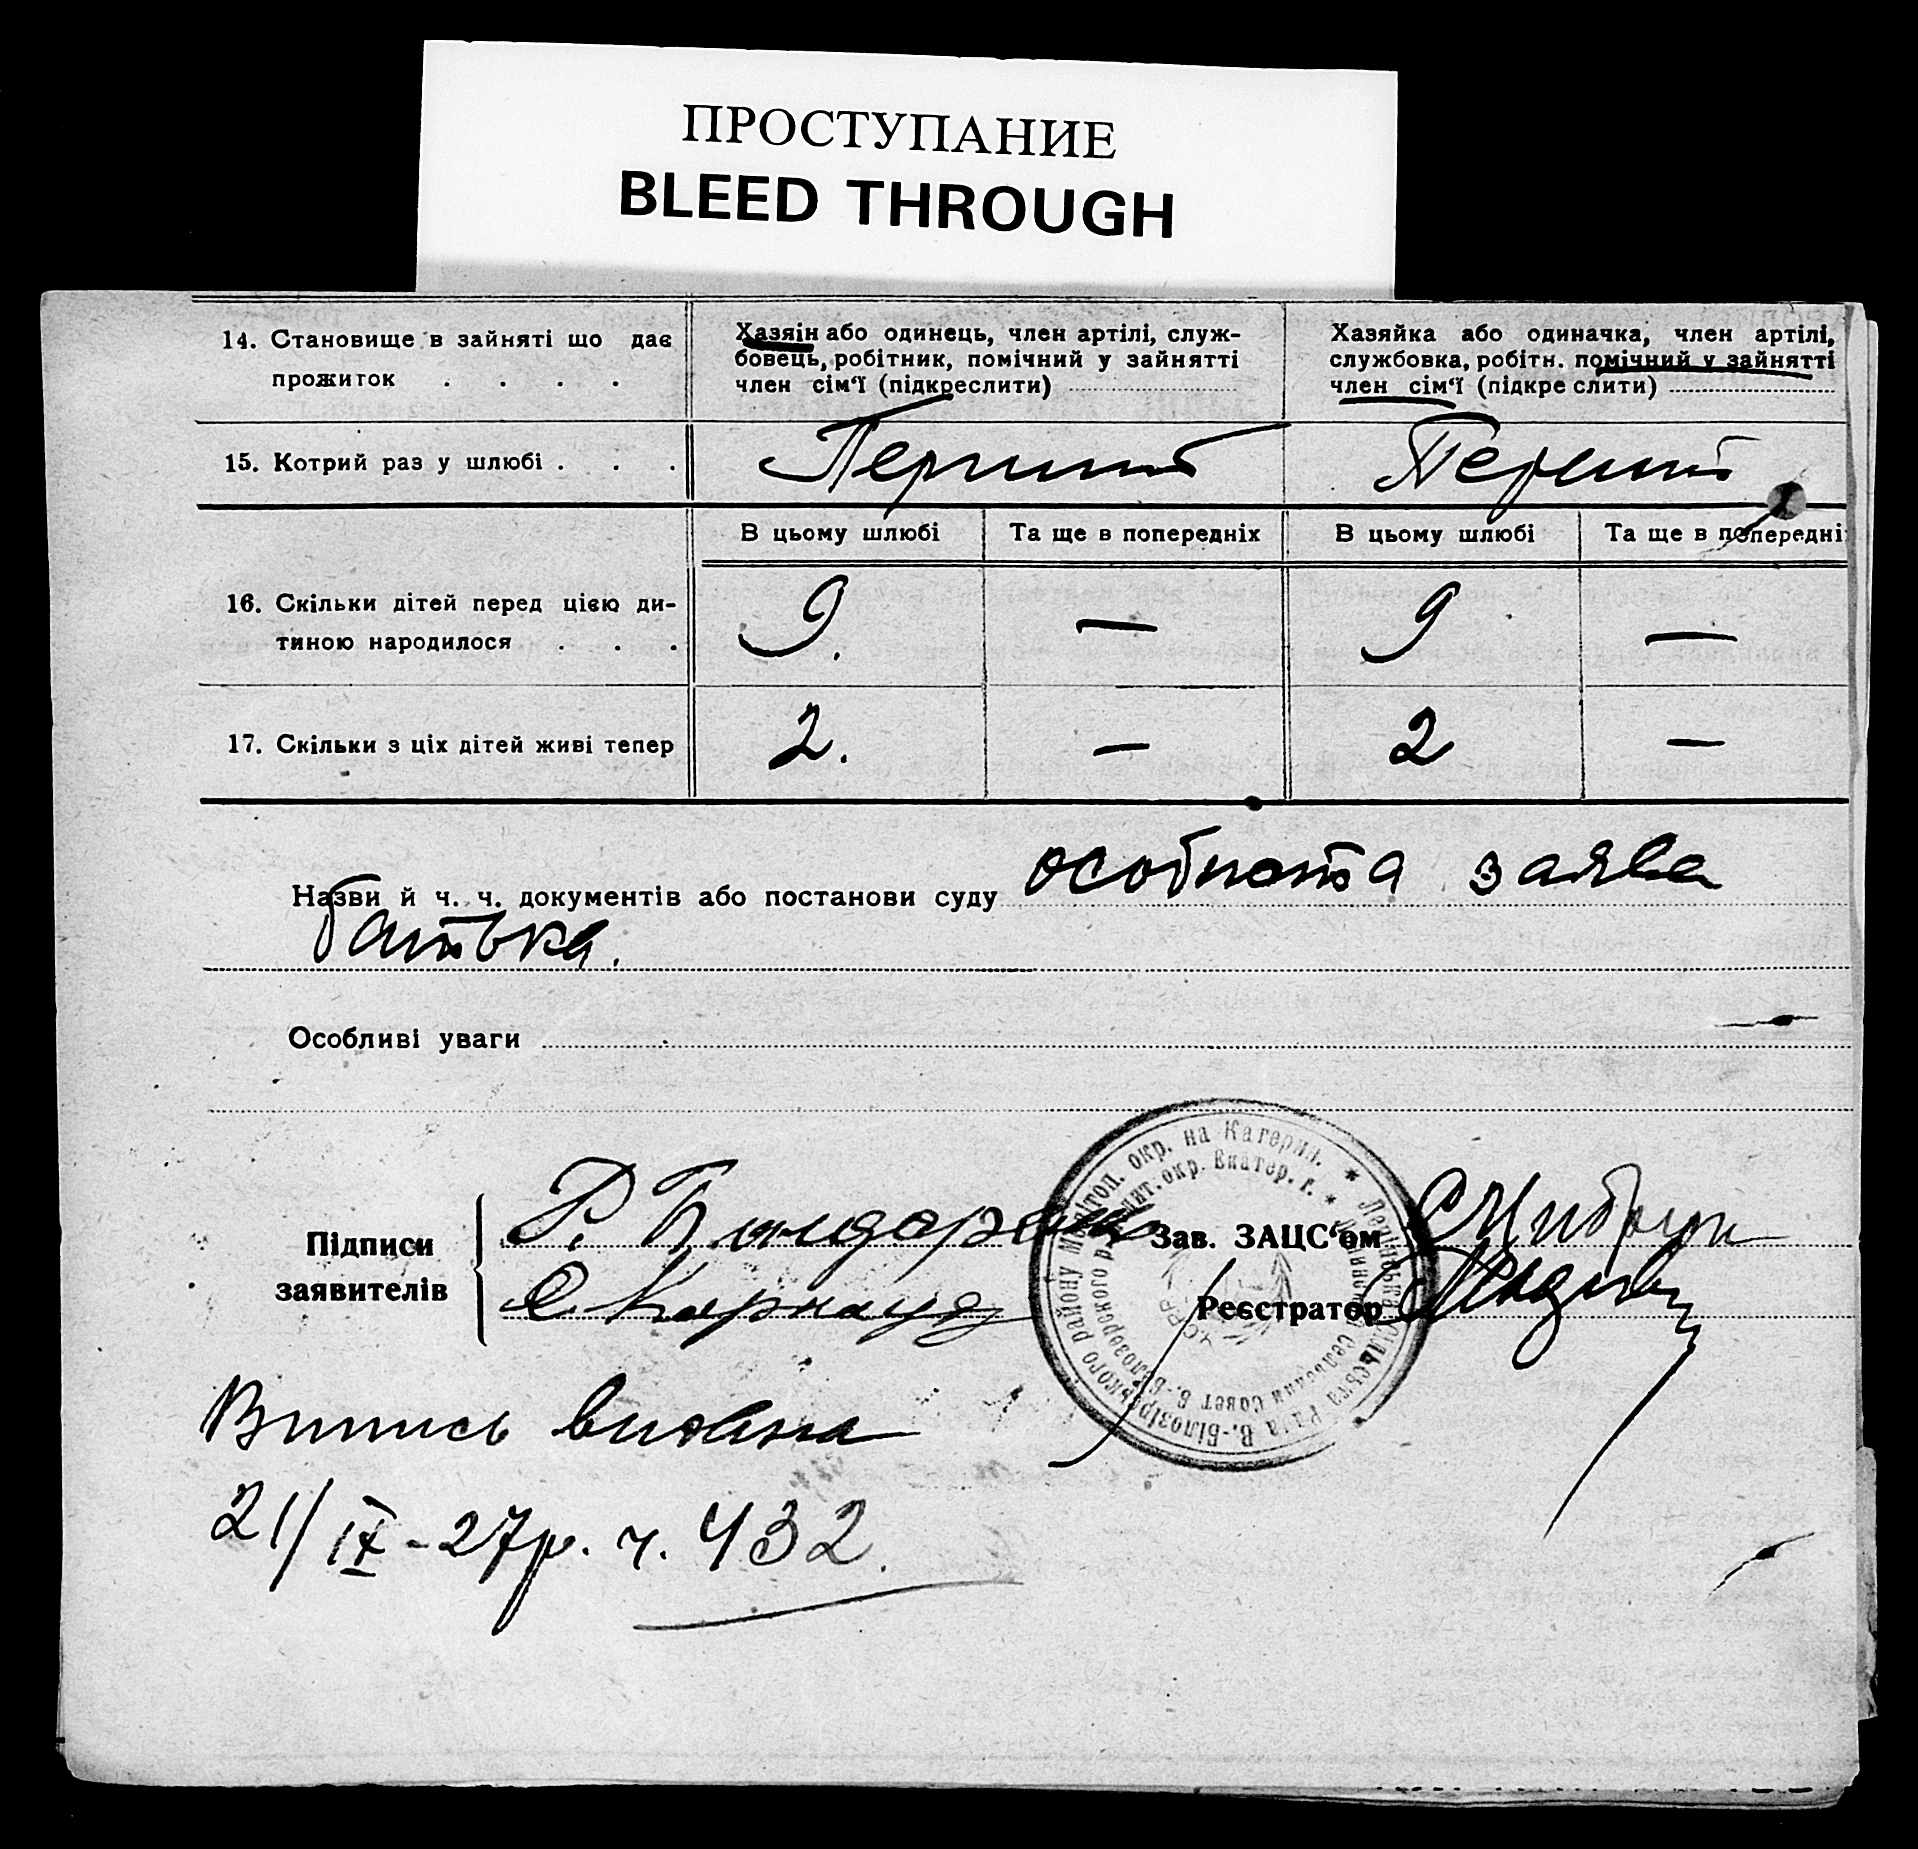 ПРОСТУПАНИЕ
BLEED THROUGH
14. Становище в зайняті що дає
прожиток . . . .
Хазяін або одинець, член артілі, служ-
бовець, робітник, помічний у зайнятті
член сім'ї (підкреслити)
Хазяйка або одиначка, член артілі,
службовка, робітн. помічний у зайнятті
член сім'ї (підкре слити)
15. Котрий раз у шлюбі . . .
Перший
Перший
В цьому шлюбі
Та ще в попередніх
В цьому шлюбі
Та ще в попередні
16. Скільки дітей перед цією ди-
тиною народилося . . .
9.
—
9
—
17. Скільки з ціх дітей живі тепер
2.
—
2
—
Назви й ч. ч. документів або постанови суду особиста заява
батька.
Особливі уваги
Підписи
заявителів
Р. Бондар
Зав. ЗАЦС'ом
Реєстратор
Ленінська Сільська Рада В.-Білозірського району Меліtоп. окр. на Катерин.
сельский совет В.-Белозерского окр. Екатер. г.
УСРР
Випись видана
21/IX-27р. ч. 432.